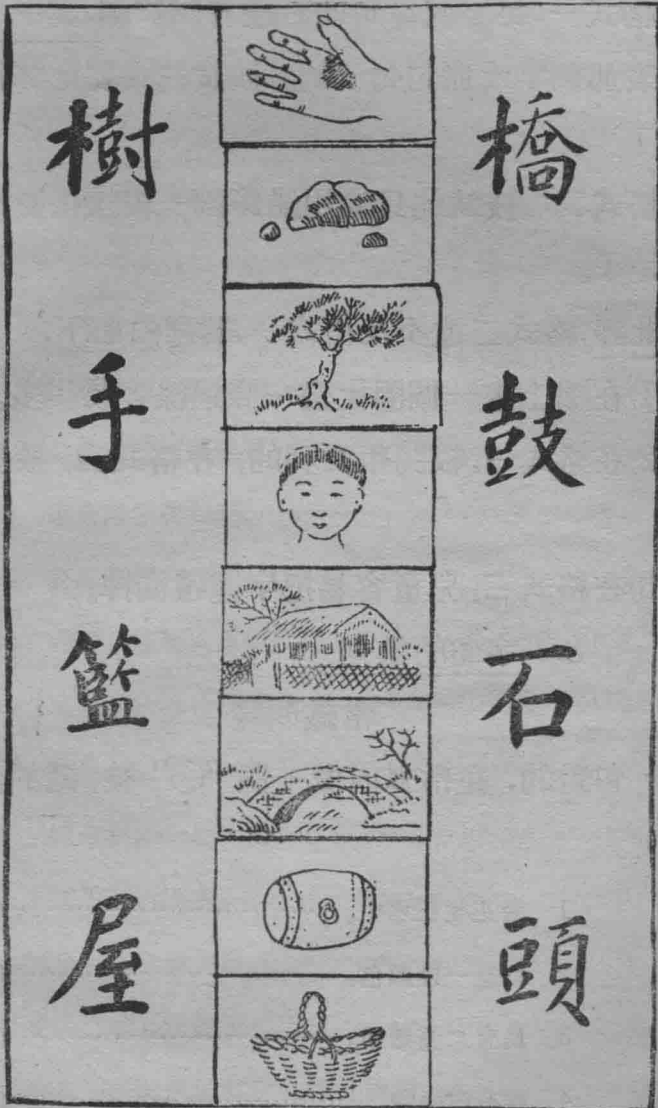 橋
鼓
石
頭
樹
手
籃
屋